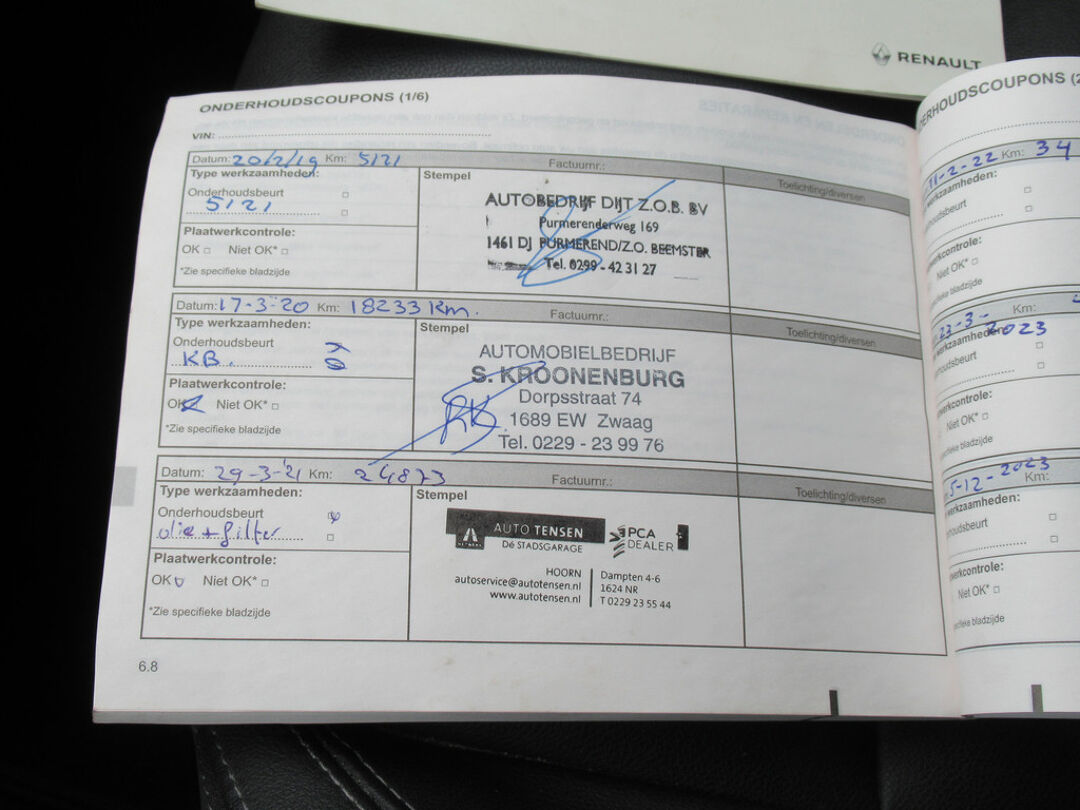 RENAULT
ONDERHOUDSCOUPONS (1/6)
VIN:
Datum: 20/2/19 Km: 5121 Factuurnr.:
Type werkzaamheden:
Onderhoudsbeurt
5121
Plaatwerkcontrole:
OK Niet OK*
*Zie specifieke bladzijde
Stempel
AUTOBEDRIJF DIJT Z.O.B. BV
Purmerenderweg 169
1461 DJ PURMEREND/Z.O. BEEMSTER
Tel. 0299 - 42 31 27
Toelichting/diversen
Datum: 17-3-20 Km: 18233 Km. Factuurnr.:
Type werkzaamheden:
Onderhoudsbeurt
KB.
Plaatwerkcontrole:
OK Niet OK*
*Zie specifieke bladzijde
Stempel
AUTOMOBIELBEDRIJF
S. KROONENBURG
Dorpsstraat 74
1689 EW Zwaag
Tel. 0229 - 23 99 76
Toelichting/diversen
Datum: 29-3-'21 Km: 24873 Factuurnr.:
Type werkzaamheden:
Onderhoudsbeurt
olie + filter
Plaatwerkcontrole:
OK Niet OK*
*Zie specifieke bladzijde
Stempel
AUTO TENSEN
Dé STADSGARAGE
PCA
DEALER
HOORN
autoservice@autotensen.nl
www.autotensen.nl
Dampten 4-6
1624 NR
T 0229 23 55 44
Toelichting/diversen
6.8
ERHOUDSCOUPONS (2
11-2-22 Km: 34
werkzaamheden:
houdsbeurt
werkcontrole:
Niet OK*
specifieke bladzijde
23-3-2023 Km:
werkzaamheden:
houdsbeurt
werkcontrole:
Niet OK*
specifieke bladzijde
5-12-2023 Km:
werkzaamheden:
houdsbeurt
werkcontrole:
Niet OK*
specifieke bladzijde